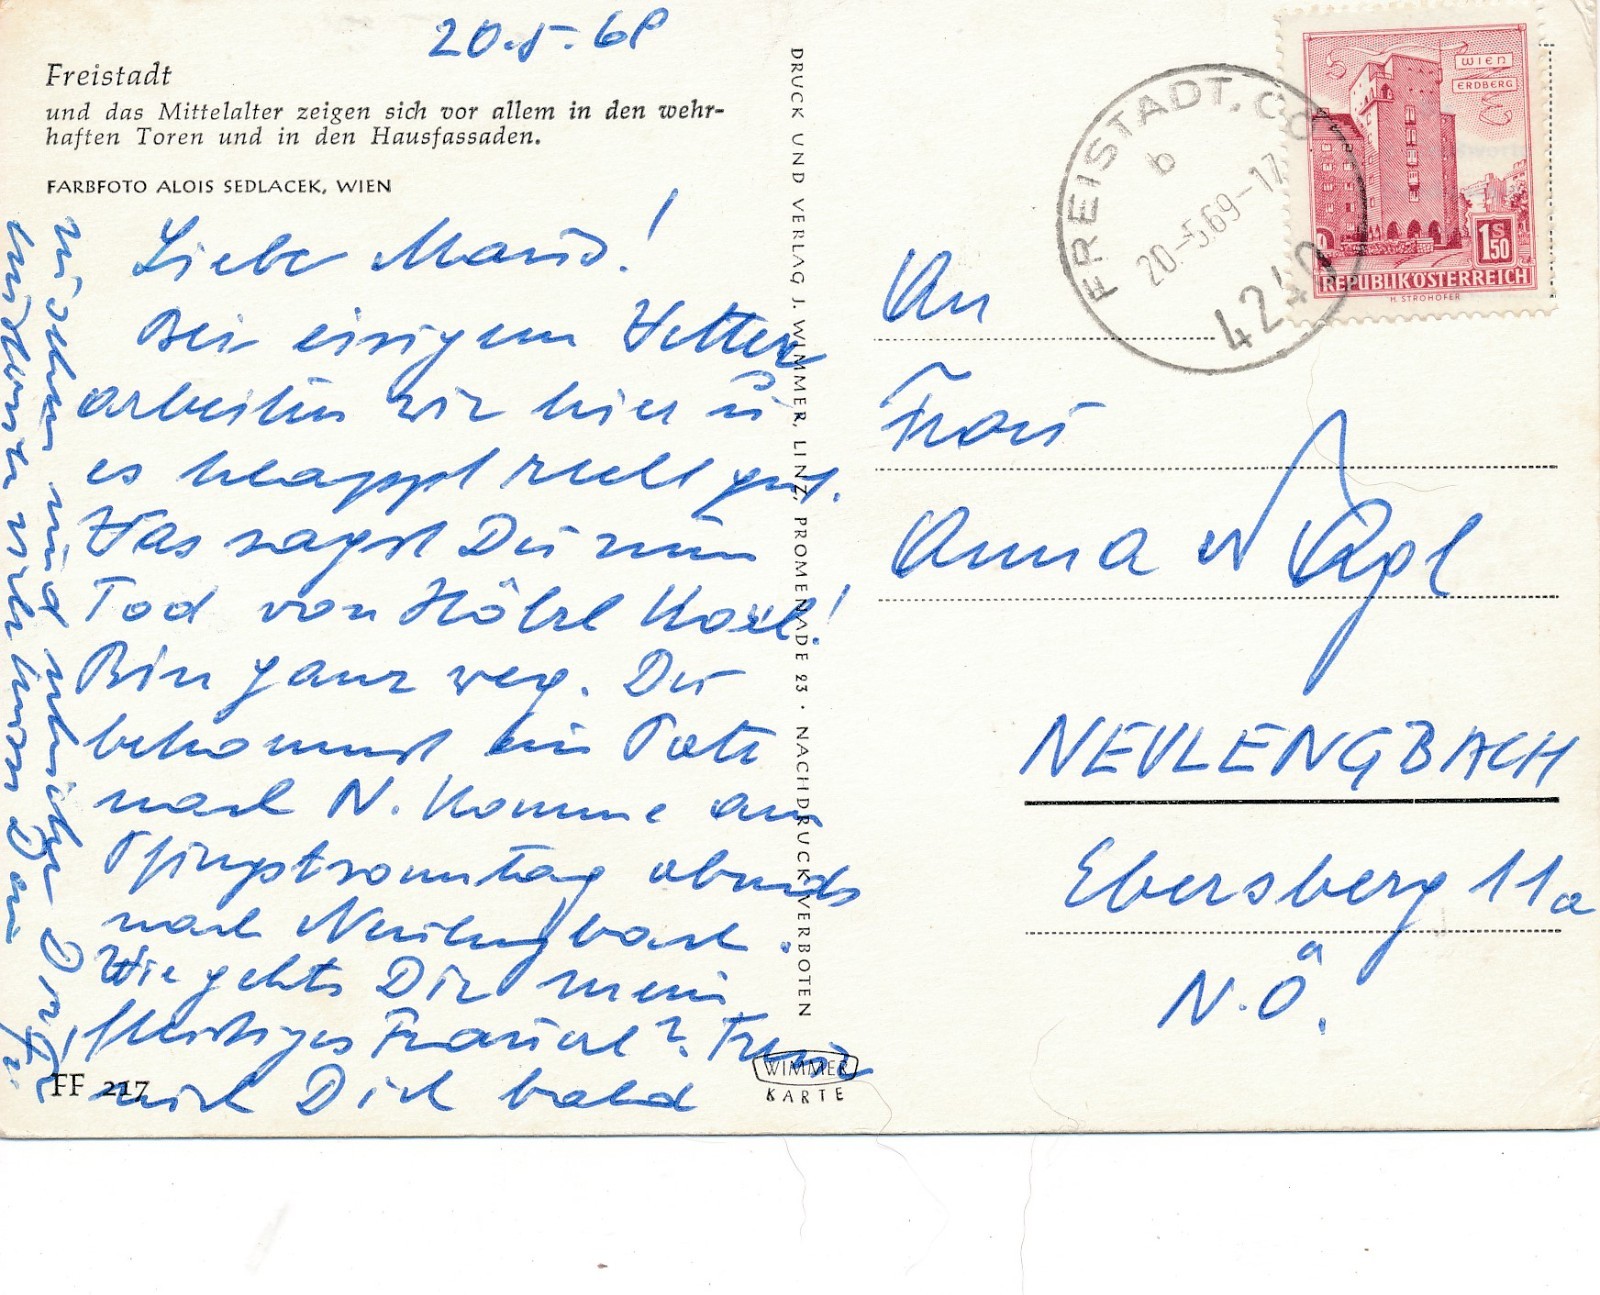 20.5.69
Freistadt
und das Mittelalter zeigen sich vor allem in den wehr-
haften Toren und in den Hausfassaden.
FARBFOTO ALOIS SEDLACEK, WIEN
Liebe
Bei eisigem Wetter
arbeiten wir hier u
es klappt recht gut.
Was sagst Du zum
Tod von Hölzl Karl!
Bin ganz weg. Du
bekommst ein Pate
nach N. Komme am
Pfingstsonntag abends
nach Neulengbach.
Wie geht's Dir mein
Frauerl? Freu
mich Dich bald
und
Dein
FF 217
DRUCK UND VERLAG J. WIMMER, LINZ, PROMENADE 23 · NACHDRUCK VERBOTEN
WIMMER
KARTE
FREISTADT, OÖ
b
20.-5.69-17
4240
WIEN
ERDBERG
1 S 50
REPUBLIK ÖSTERREICH
H. STROHOFER
An
Frau
Anna
NEULENGBACH
Ebersberg 11a
N.Ö.